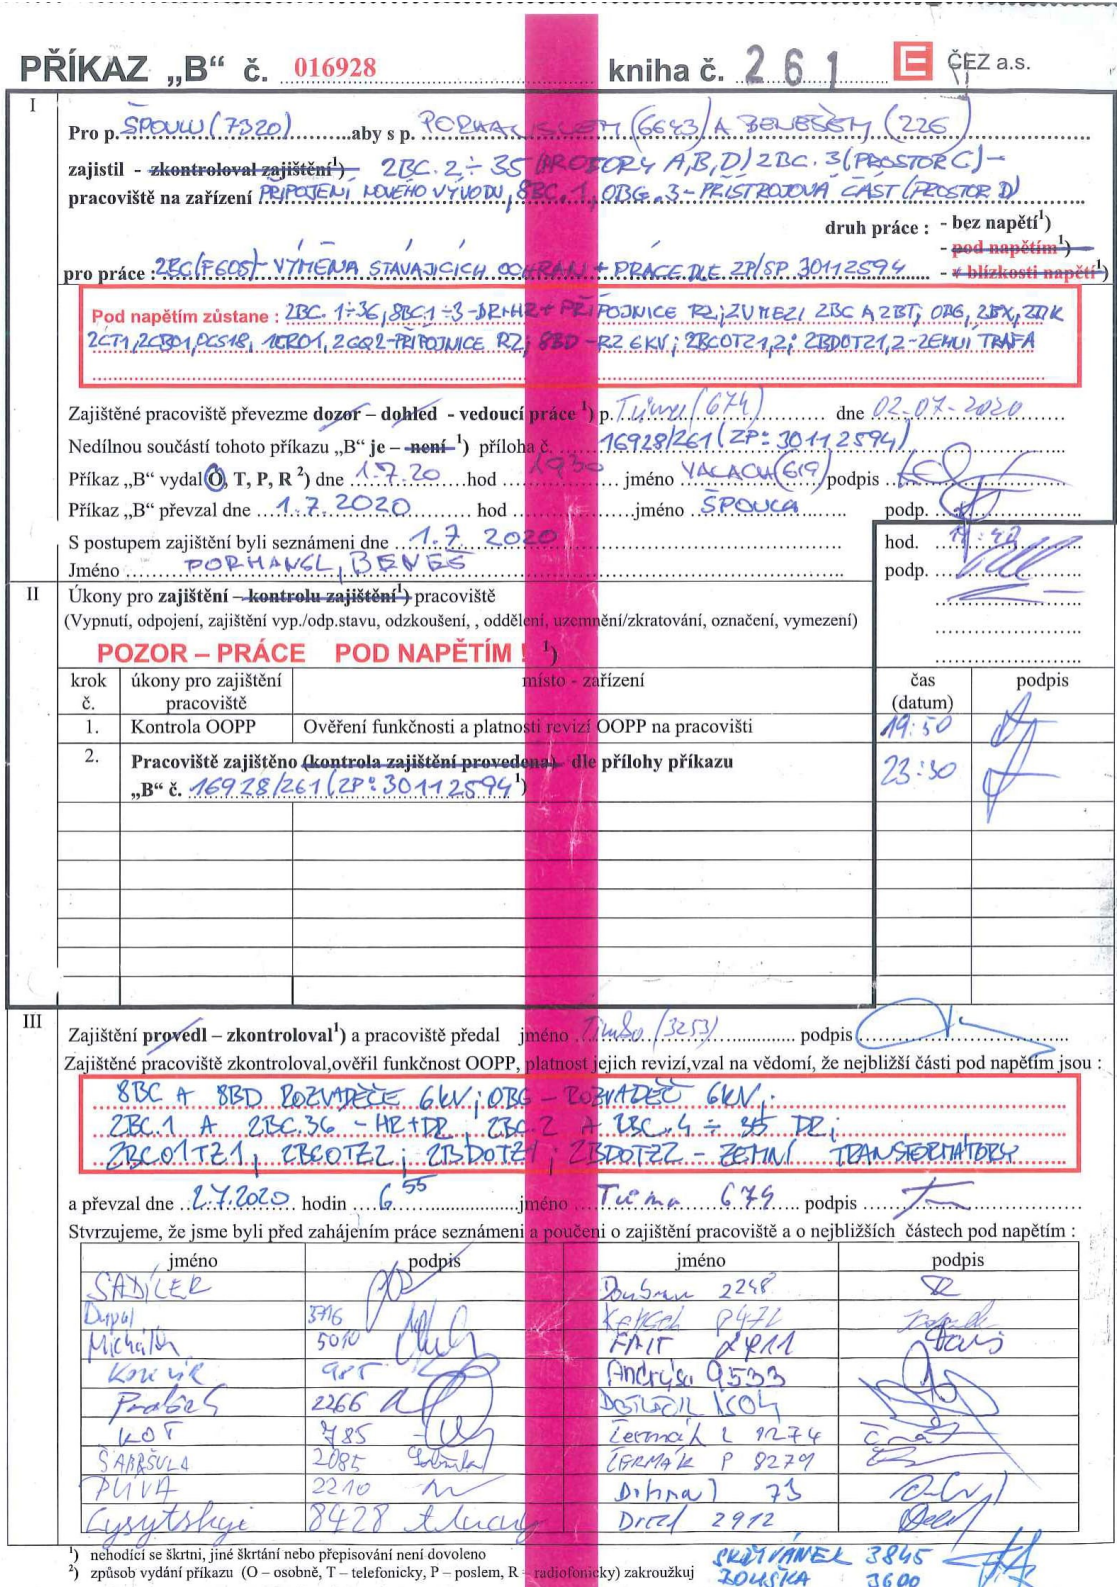 PŘÍKAZ „B“ č. 016928 kniha č. 261 ČEZ a.s.
I
Pro p. ŠPOULU (7320) aby s p. (6643) A BENEŠEM (226)
zajistil - zkontroloval zajištění¹) 2BC.2÷35 (PROSTORY A,B,D) 2BC.3 (PROSTOR C) -
pracoviště na zařízení PŘIPOJENÍ NOVÉHO VÝVODU, 8BC.1, OBG.3 - PŘÍSTROJOVÁ ČÁST (PROSTOR D)
druh práce : - bez napětí¹)
- pod napětím¹)
pro práce : 2BC (F605) - VÝMĚNA STÁVAJÍCÍCH OCHRAN + PRÁCE DLE ZP/SP 30112594 - v blízkosti napětí¹)
Pod napětím zůstane : 2BC.1÷36, 8BC1÷3-DR+HR+PŘÍPOJNICE RZ; ZU MEZI 2BC A 2BT; OBG, 2BX,
2CT1, 2CB01, 1CR01, 2GQ2-PŘÍPOJNICE RZ; 8BD -RZ 6KV; 2BC0TZ1,2; 2BD0TZ1,2-ZEMNÍ TRAFA
Zajištěné pracoviště převezme dozor – dohled - vedoucí práce ¹) p. Tůma (674) dne 02-07-2020
Nedílnou součástí tohoto příkazu „B“ je – není ¹) příloha č. 16928/261 (ZP: 30112594)
Příkaz „B“ vydal O, T, P, R ²) dne 1.7.20 hod 1930 jméno VALACH (619) podpis
Příkaz „B“ převzal dne 1.7.2020 hod jméno ŠPOULA podp.
S postupem zajištění byli seznámeni dne 1.7.2020 hod. 19:40
Jméno PORHANSL, BENEŠ podp.
II Úkony pro zajištění – kontrolu zajištění¹) pracoviště
(Vypnutí, odpojení, zajištění vyp./odp.stavu, odzkoušení, , oddělení, uzemnění/zkratování, označení, vymezení)
POZOR – PRÁCE POD NAPĚTÍM ! ¹)
krok č. úkony pro zajištění pracoviště místo - zařízení čas (datum) podpis
1. Kontrola OOPP Ověření funkčnosti a platnosti revizí OOPP na pracovišti 19:50
2. Pracoviště zajištěno (kontrola zajištění provedena) dle přílohy příkazu 23:30
„B“ č. 16928/261 (ZP: 30112594 ¹)
III
Zajištění provedl – zkontroloval¹) a pracoviště předal jméno (3253) podpis
Zajištěné pracoviště zkontroloval,ověřil funkčnost OOPP, platnost jejich revizí,vzal na vědomí, že nejbližší části pod napětím jsou :
8BC A 8BD ROZVADĚČE 6kV; OBG - ROZVADĚČ 6kV;
2BC.1 A 2BC.36 - HR+DR; 2BC.2 A 2BC.4 ÷ 35 DR;
2BC01TZ1; 2BC0TZ2; 2BD0TZ1; 2BD0TZ2 - ZEMNÍ TRANSFORMÁTORY
a převzal dne 2.7.2020 hodin 6 55 jméno Tůma 674 podpis
Stvrzujeme, že jsme byli před zahájením práce seznámeni a poučeni o zajištění pracoviště a o nejbližších částech pod napětím :
jméno podpis jméno podpis
SADÍLEK 2248
Dupal 3716
Michálek 5010 FAIT
985 Andrýsa 9533
2266
KOT 785 Čermák L 9274
ŠABRŠULA 2085 ČERMÁK P 8279
PLÍVA 2210 73
8428 2912
¹) nehodící se škrtni, jiné škrtání nebo přepisování není dovoleno
²) způsob vydání příkazu (O – osobně, T – telefonicky, P – poslem, R – radiofonicky) zakroužkuj
SKŘIVÁNEK 3845
ZOUSKA 3600